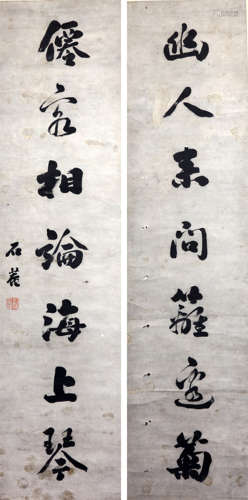 幽人来问篱边菊
僊客相論海上琴
石菴